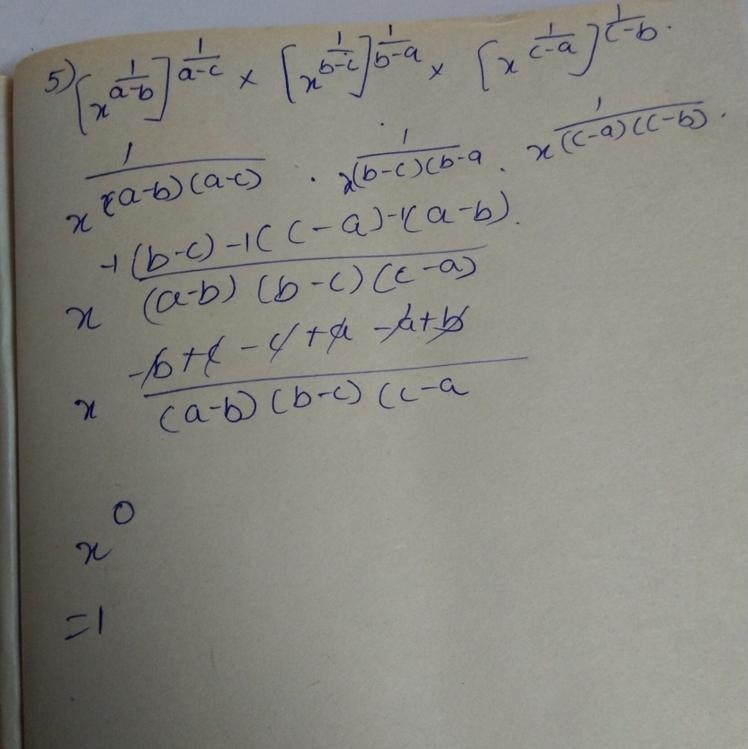 5) [x^{1/(a-b)}]^{1/(a-c)} × [x^{1/(b-c)}]^{1/(b-a)} × [x^{1/(c-a)}]^{1/(c-b)}.
x^{1/((a-b)(a-c))} . x^{1/((b-c)(b-a} . x^{1/((c-a)(c-b))}.
x^{(-1(b-c) -1(c-a) -1(a-b))/((a-b)(b-c)(c-a))}.
x^{(-b+c-c+a-a+b)/((a-b)(b-c)(c-a}
x^0
=1